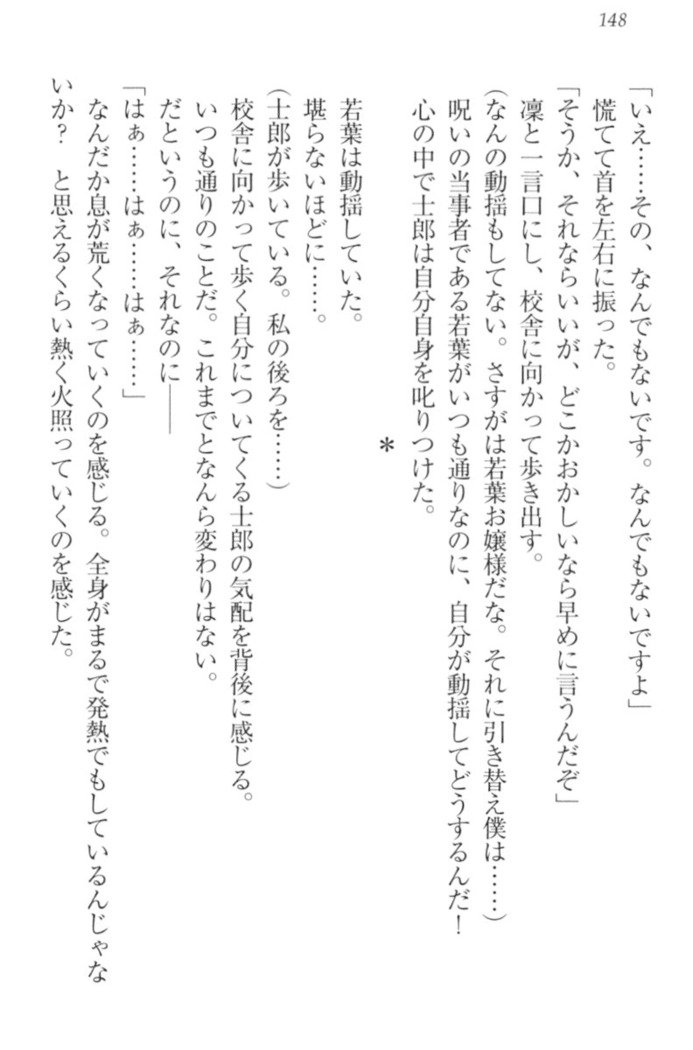 148
「いえ……その、なんでもないです。なんでもないですよ」
慌てて首を左右に振った。
「そうか、それならいいが、どこかおかしいなら早めに言うんだぞ」
凜と一言口にし、校舎に向かって歩き出す。
(なんの動揺もしてない。さすがは若葉お嬢様だな。それに引き替え僕は……)
呪いの当事者である若葉がいつも通りなのに、自分が動揺してどうするんだ!
心の中で士郎は自分自身を叱りつけた。
*
若葉は動揺していた。
堪らないほどに……。
(士郎が歩いている。私の後ろを……)
校舎に向かって歩く自分についてくる士郎の気配を背後に感じる。
いつも通りのことだ。これまでとなんら変わりはない。
だというのに、それなのに――
「はぁ……はぁ……はぁ……」
なんだか息が荒くなっていくのを感じる。全身がまるで発熱でもしているんじゃな
いか? と思えるくらい熱く火照っていくのを感じた。